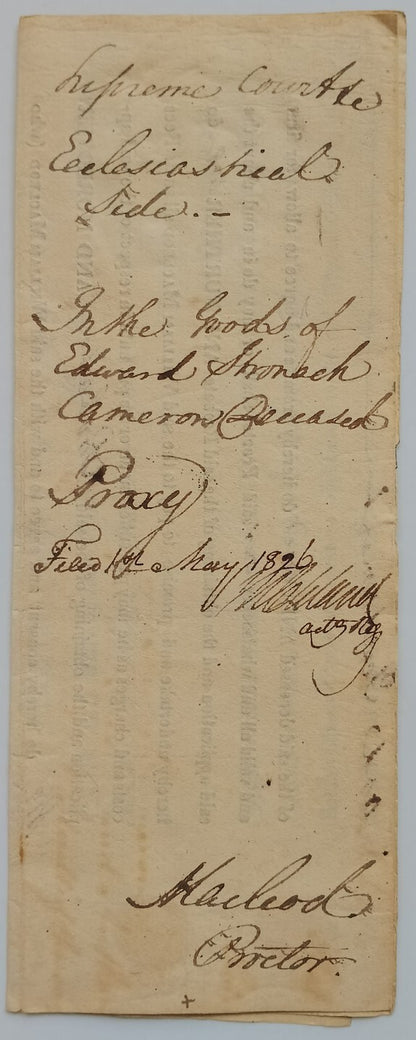 Supreme Court
Ecclesiastical
Side. –
In the Goods of
Edward Stronach
Cameron Deceased
Proxy
Filed 1st May 1826
actg Reg
Macleod
Proctor.